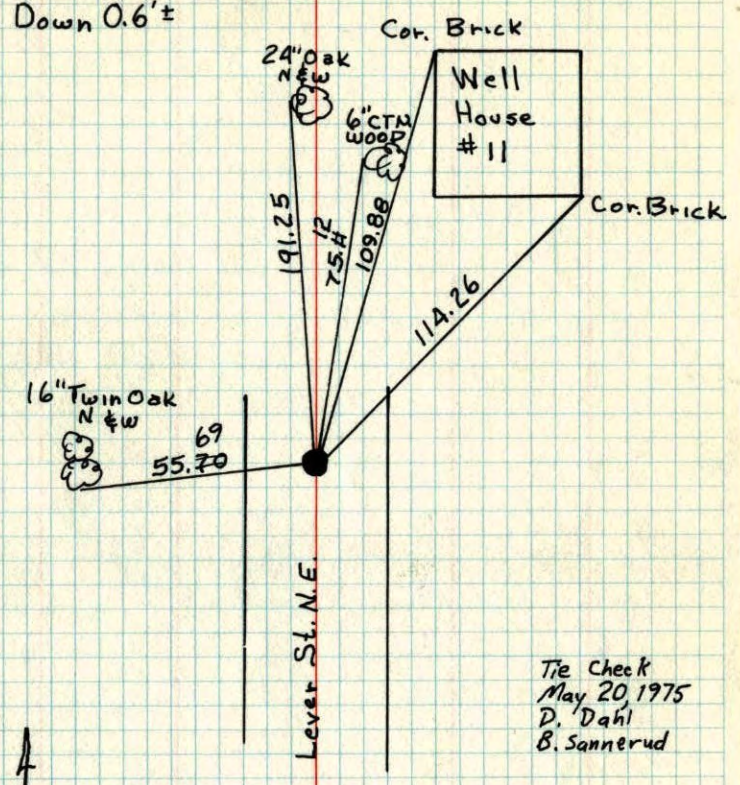 Down 0.6'±
Cor. Brick
24" Oak
N & W
6" CTN
WOOD
Well
House
# 11
Cor. Brick
191.25
12
75.11
109.88
114.26
16" Twin Oak
N & W
69
55.70
Lever St. N.E.
Tie Check
May 20, 1975
D. Dahl
B. Sannerud